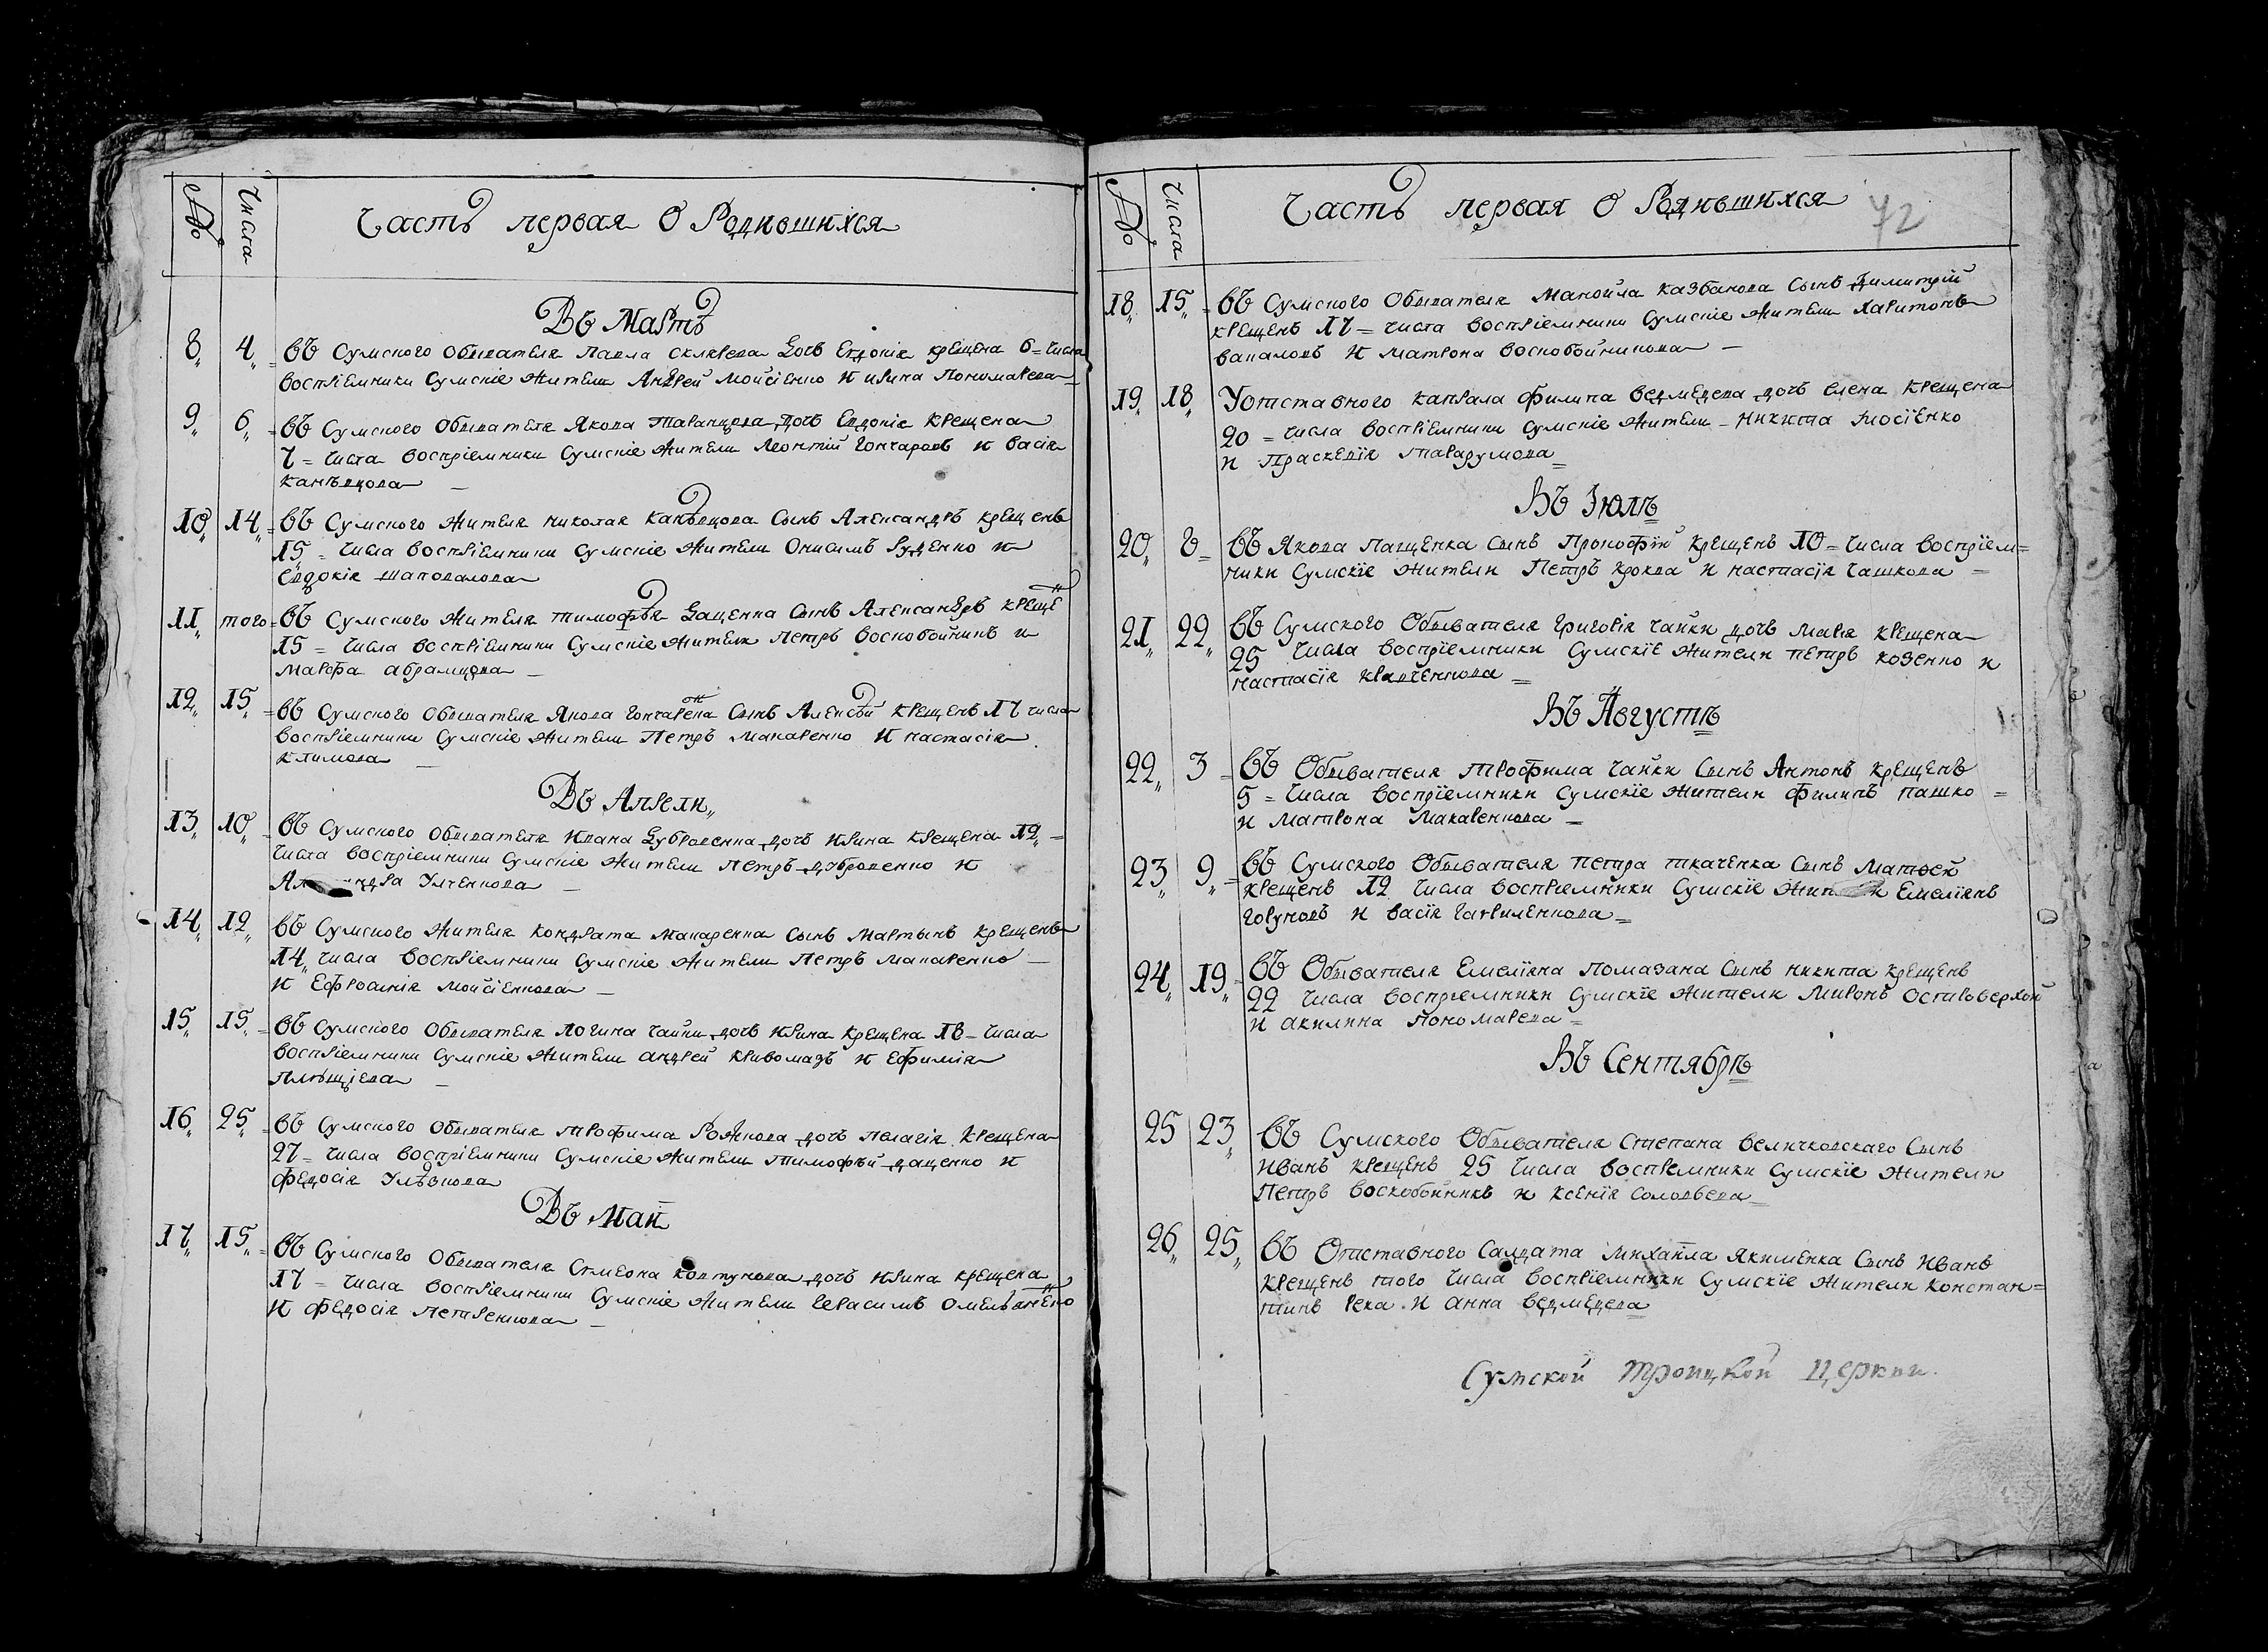 № Числа Часть первая О Родившихся
Въ Мартѣ
8 4 въ Сумского Обывателя Павла склярева дочь Евдокія крещена 6 = числа
воспріемники Сумскіе жители Андрей Мойсіенко и ирина Пономарева
9 6 въ Сумского Обывателя Якова Таранцова дочь Евдокія крещена
7 = числа воспріемники Сумскіе жители Леонтій Гончаровъ и васія
канѣвцова
10 14 въ Сумского жителя николая канѣвцова сынъ Александръ крещенъ
15 = числа воспріемники Сумскіе жители Онисимъ Руденко и
Евдокія шаповалова
11 того въ Сумского жителя тимофѣя Даценка сынъ Александръ крещенъ
15 = числа воспріемники Сумскіе жителя Петръ воскобойникъ и
марфа абрамцова
12 15 въ Сумского Обывателя Якова гончаренка сынъ Алексѣй крещенъ 17 числа
воспріемники Сумскіе жители Петръ Макаренко и настасія
климова
Въ Апрели
13 10 въ Сумского Обывателя ивана Дубровенка дочь ирина крещена 12 =
числа воспріемники Сумскіе жители Петръ дубровенко и
Улченкова
14 12 въ Сумского жителя кондрата макаренка сынъ мартынъ крещенъ
14 числа воспріемники Сумскіе жители Петръ макаренко
и Ефросинія мойсіенкова
15 15 въ Сумского Обывателя логина чайки дочь ирина крещена 18 = числа
воспріемники Сумскіе жители андрей кривомазъ и Ефимія
16 25 въ Сумского Обывателя трофима Рожкова дочь пелагія крещена
27 = числа воспріемники Сумскіе жители тимофѣй даценко и
федосія
Въ Маѣ
17 15 въ Сумского Обывателя Симеона колтунова дочь ирина крещена
17 = числа воспріемники Сумскіе жители Герасимъ Омельяненко
и федосія петренкова
№ Числа Часть первая О Родившихся 72
18 15 въ Сумского Обывателя Манойла казбанова сынъ димитрій
крещенъ 17 = числа воспріемники Сумскіе жители харитонъ
вакаловъ и матрона воскобойникова
19 18 Уотставного капрала филипа ведмедева дочь елена крещена
20 = числа воспріемники Сумскіе жители никита
и Праскевія тарарумова
Въ Іюлѣ
20 8 въ Якова пащенка сынъ Прокофій крещенъ 10 = числа воспріем=
ники Сумскіе жители Петръ крохва и настасія чашкова
21 22 въ Сумского Обывателя григорія чайки дочь марія крещена
25 числа воспріемники Сумскіе жители петръ козенко и
настасія кравченкова
Въ Августѣ
22 3 въ Обывателя трофима чайки сынъ Антонъ крещенъ
5 = числа воспріемники Сумскіе жители филипъ пашко =
и Матрона Макаренкова
23 9 въ Сумского Обывателя петра ткаченка сынъ Матфей
крещенъ 12 числа воспріемники Сумскіе жители Емеліянъ
горуновъ и васія гавриленкова
24 19 въ Обывателя Емеліяна помазана сынъ никита крещенъ
22 числа воспріемники Сумскіе жители Миронъ островерхой
и акилина пономарева
Въ Сентябрѣ
25 23 въ Сумского Обывателя Степана величковскаго сынъ
иванъ крещенъ 25 числа воспріемники Сумскіе жители
Петръ воскобойникъ и ксенія соловьева
26 25 въ Отставного Салдата михайла якименка сынъ иванъ
крещенъ того числа воспріемники Сумскіе жители констан=
тинъ река и анна ведмедева
Сумской троицкой церкви.